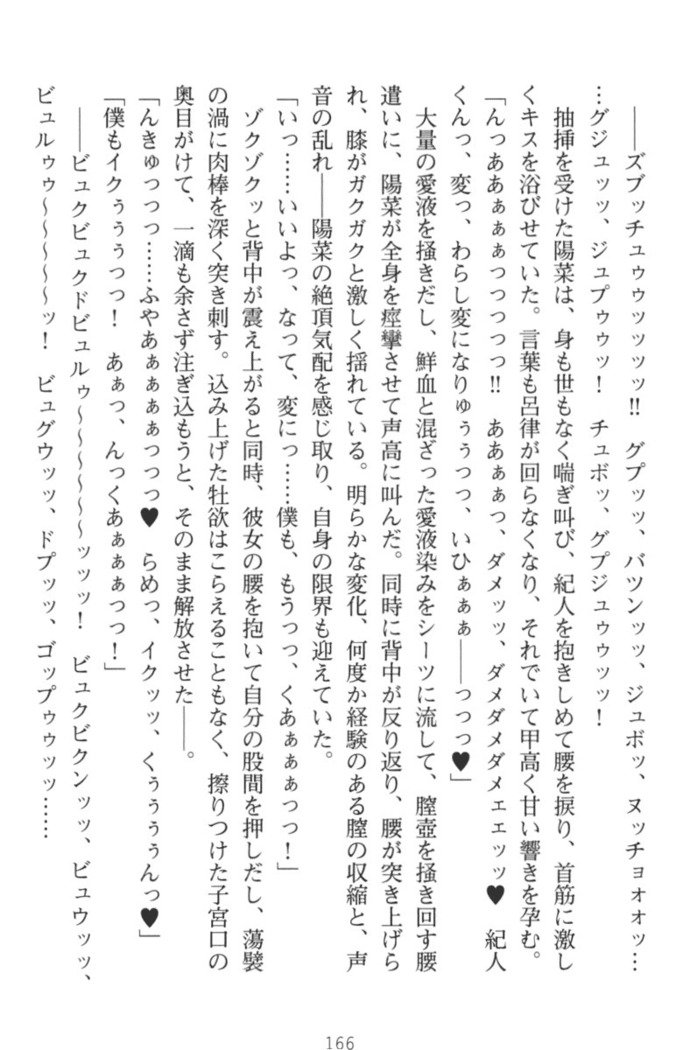 ――ズブッチュゥゥッッッッ!!　グプッッ、バツンッッ、ジュボッ、ヌッチョォオッ…
…グジュッッ、ジュプゥゥッ！　チュボッ、グプジュゥゥッッ！
抽挿を受けた陽菜は、身も世もなく喘ぎ叫び、紀人を抱きしめて腰を捩り、首筋に激し
くキスを浴びせていた。言葉も呂律が回らなくなり、それでいて甲高く甘い響きを孕む。
「んっああぁぁぁっっっっっ!!　ああぁぁっ、ダメッッ、ダメダメダメェェッッ♥　紀人
くんっ、変っ、わらし変になりゅぅぅっっ、いひぁぁぁ――っっっ♥」
大量の愛液を掻きだし、鮮血と混ざった愛液染みをシーツに流して、膣壺を掻き回す腰
遣いに、陽菜が全身を痙攣させて声高に叫んだ。同時に背中が反り返り、腰が突き上げら
れ、膝がガクガクと激しく揺れている。明らかな変化、何度か経験のある膣の収縮と、声
音の乱れ――陽菜の絶頂気配を感じ取り、自身の限界も迎えていた。
「いっ……いいよっ、なって、変にっ……僕も、もうっっ、くあぁぁぁっっ！」
ゾクゾクッと背中が震え上がると同時、彼女の腰を抱いて自分の股間を押しだし、蕩襞
の渦に肉棒を深く突き刺す。込み上げた牡欲はこらえることもなく、擦りつけた子宮口の
奥目がけて、一滴も余さず注ぎ込もうと、そのまま解放させた――。
「んきゅっっっ……ふやあぁぁぁぁっっっ♥　らめっ、イクッッ、くぅぅぅぅんっ♥」
「僕もイクぅぅぅっっ！　あぁっ、んっくあぁぁぁっっ！」
――ビュクビュクドビュルゥ～～～～～～ッッッ！　ビュクビクンッッ、ビュウッッ、
ビュルゥゥ～～～～～ッ！　ビュグウッッ、ドプッッ、ゴップゥゥッッ……
166